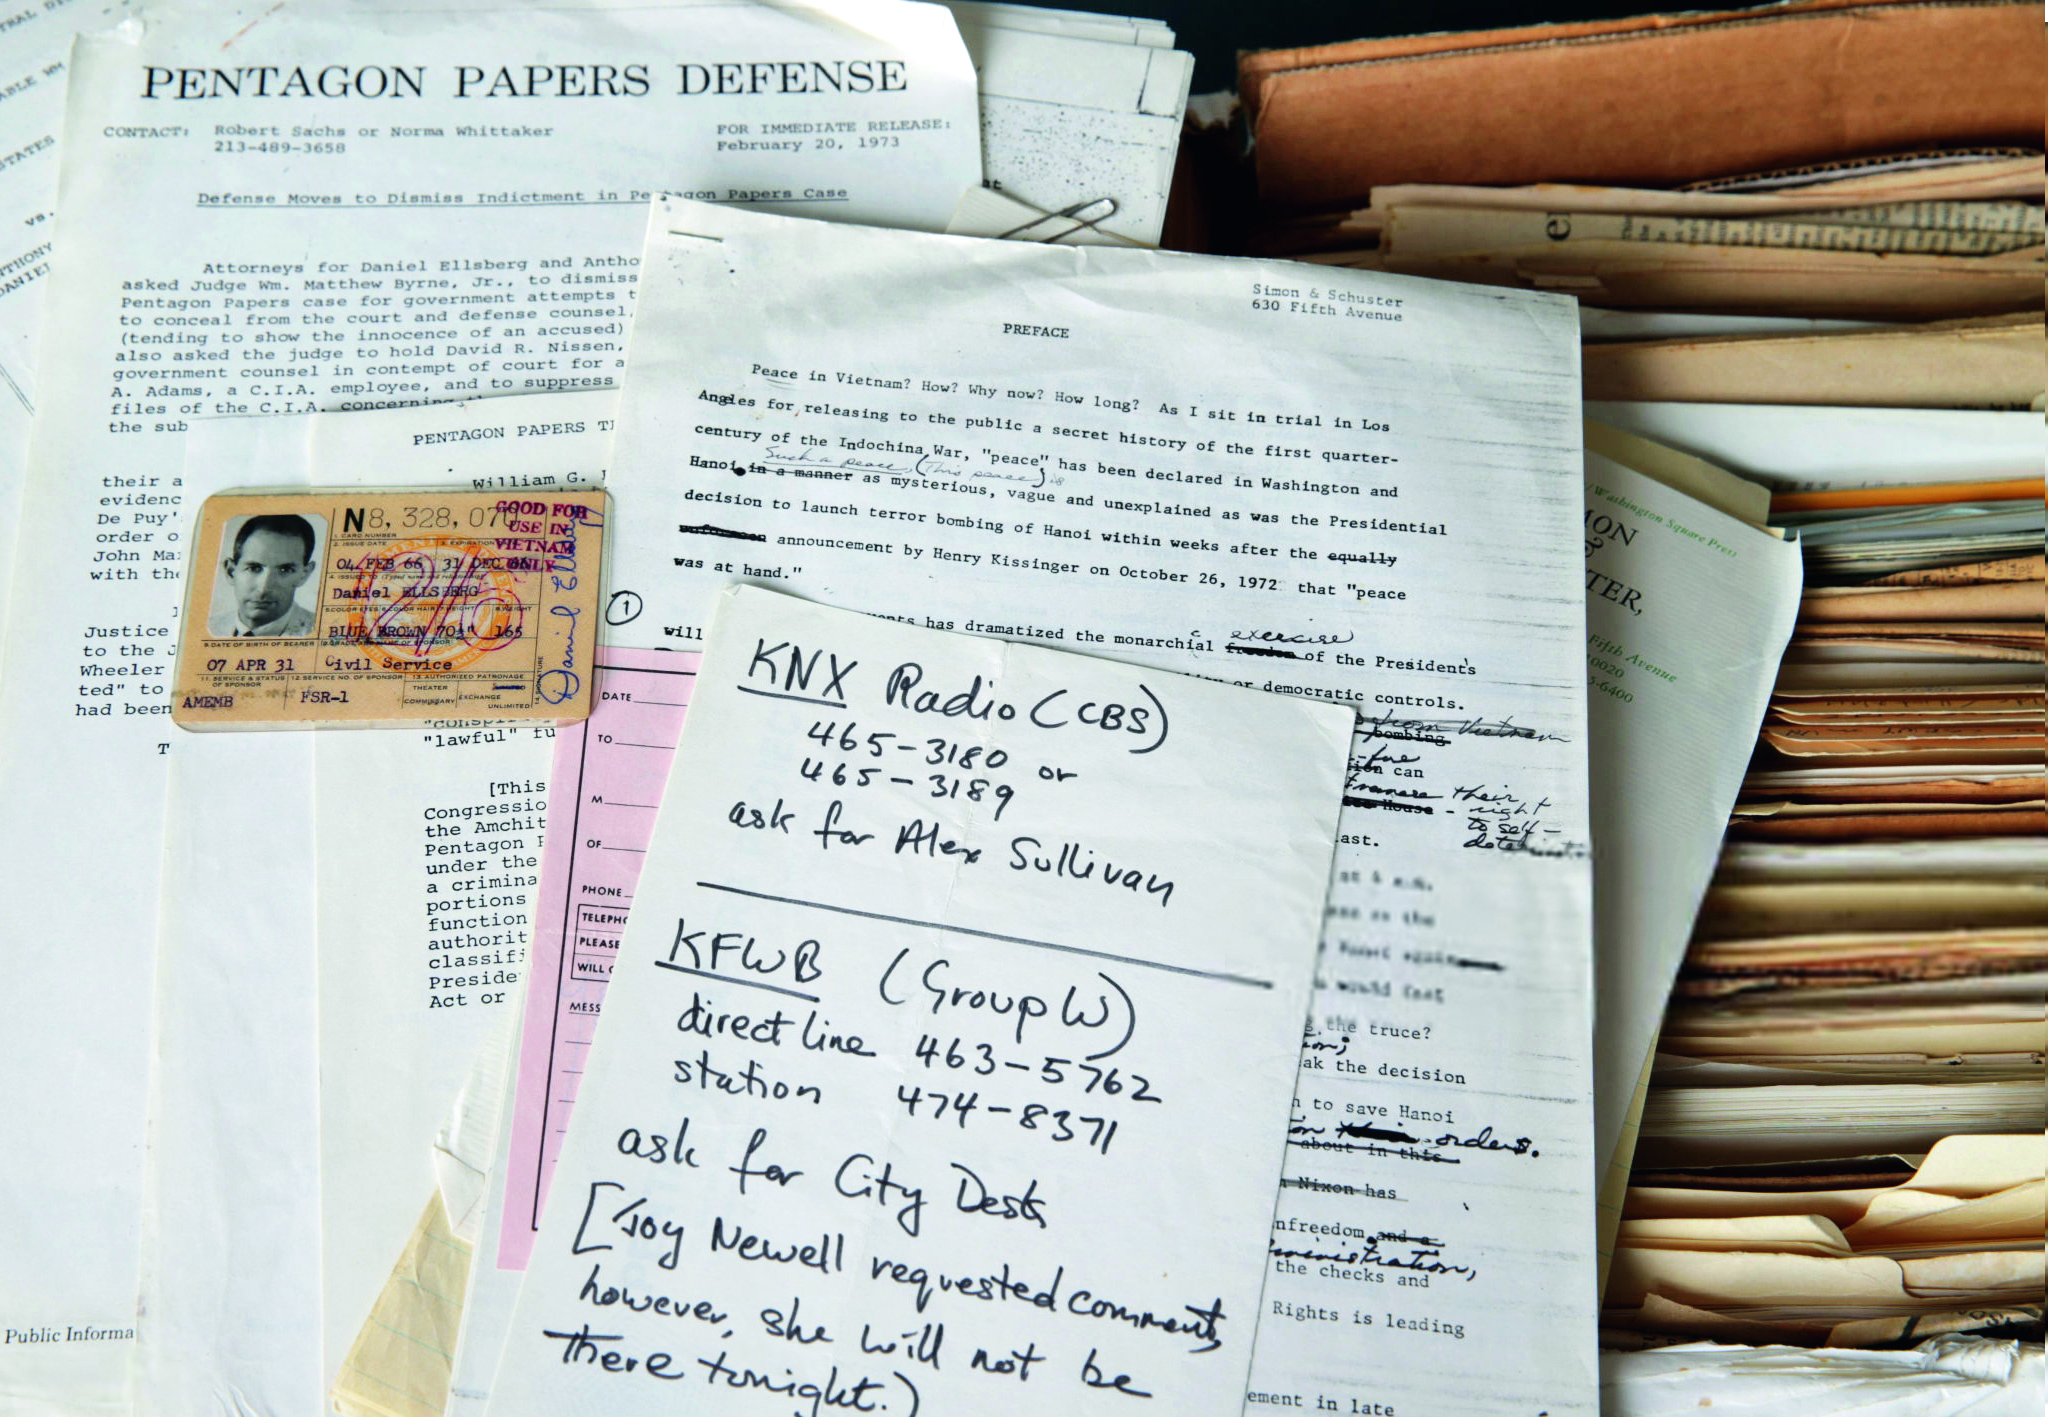 PENTAGON PAPERS DEFENSE
CONTACT: Robert Sachs or Norma Whittaker
213-489-3658
FOR IMMEDIATE RELEASE:
February 20, 1973
Defense Moves to Dismiss Indictment in Pentagon Papers Case
Attorneys for Daniel Ellsberg and Antho
asked Judge Wm. Matthew Byrne, Jr., to dismiss
Pentagon Papers case for government attempts t
to conceal from the court and defense counsel,
(tending to show the innocence of an accused)
also asked the judge to hold David R. Nissen,
government counsel in contempt of court for a
A. Adams, a C.I.A. employee, and to suppress
files of the C.I.A. concerning
the sub
their a
evidenc
De Puy'
order o
John Ma
with the
Justice
to the J
Wheeler
ted" to
had been
T
Public Informa
STATES
vs.
THONY
DANIEL
PENTAGON PAPERS T
William G.
"lawful" fu
[This
Congressio
the Amchit
Pentagon P
under the
a crimina
portions
function
authorit
classifi
Preside
Act or
N8, 328, 070
GOOD FOR
USE IN
VIETNAM
ONLY
1. CARD NUMBER
2. ISSUE DATE
04 FEB 66 31 DEC
Daniel ELLSBERG
BLUE BROWN 70½" 165
9. DATE OF BIRTH OF BEARER
07 APR 31 Civil Service
11. SERVICE & STATUS OF SPONSOR
12. SERVICE NO. OF SPONSOR
13. AUTHORIZED PATRONAGE
AMEMB FSR-1
THEATER
COMMISSARY
EXCHANGE
UNLIMITED
SIGNATURE
Daniel Ellsberg
Simon & Schuster
630 Fifth Avenue
PREFACE
Peace in Vietnam? How? Why now? How long? As I sit in trial in Los
Angles for releasing to the public a secret history of the first quarter-
century of the Indochina War, "peace" has been declared in Washington and
Such a peace, (This peace) is
Hanoi in a manner as mysterious, vague and unexplained as was the Presidential
decision to launch terror bombing of Hanoi within weeks after the equally
announcement by Henry Kissinger on October 26, 1972 that "peace
was at hand."
1
exercise
has dramatized the monarchial freedom of the President's
will
or democratic controls.
from Vietnam
bombing
can
their
right
House
to self-
ast.
the truce?
ak the decision
to save Hanoi
orders.
about in this
Nixon has
nfreedom and a
ministration,
the checks and
Rights is leading
ement in late
DATE
TO
M
OF
PHONE
TELEPH
PLEASE
WILL
MESS
KNX Radio (CBS)
465-3180 or
465-3189
ask for Alex Sullivan
KFWB (Group W)
direct line 463-5762
station 474-8371
ask for City Desk
[Joy Newell requested comment,
however, she will not be
there tonight.)
Washington Square Press
MON
&
TER,
Fifth Avenue
10020
5-6400